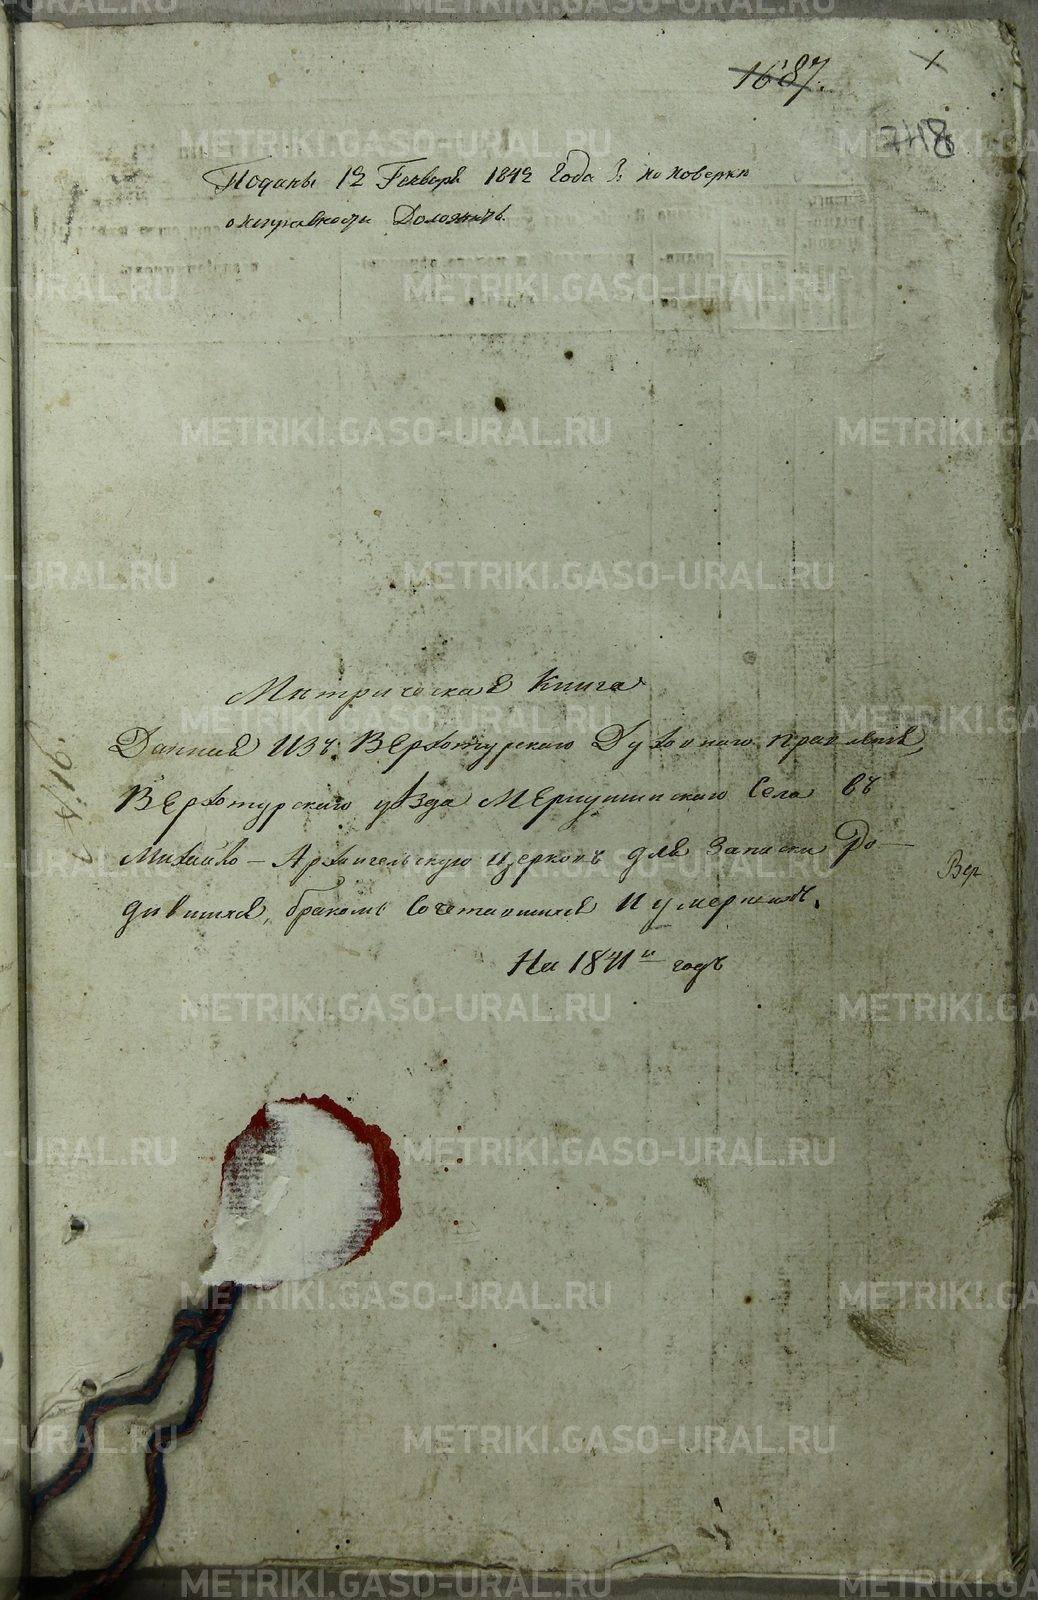 1687.
748
Поданы 12 Генваря 1842 Года и по поверки
о исправности Доложить.
Метрическая Книга
Данная изъ Верхотурскаго Духовнаго правленія
Верхотурскаго уѣзда Меркушинскаго Села въ
Михайло-Архангельскую церковь для Записки Ро-
дившихся, бракомъ Сочетавшихся и умершихъ.
На 1841й годъ
№ 16.
Вер
METRIKI.GASO-URAL.RU